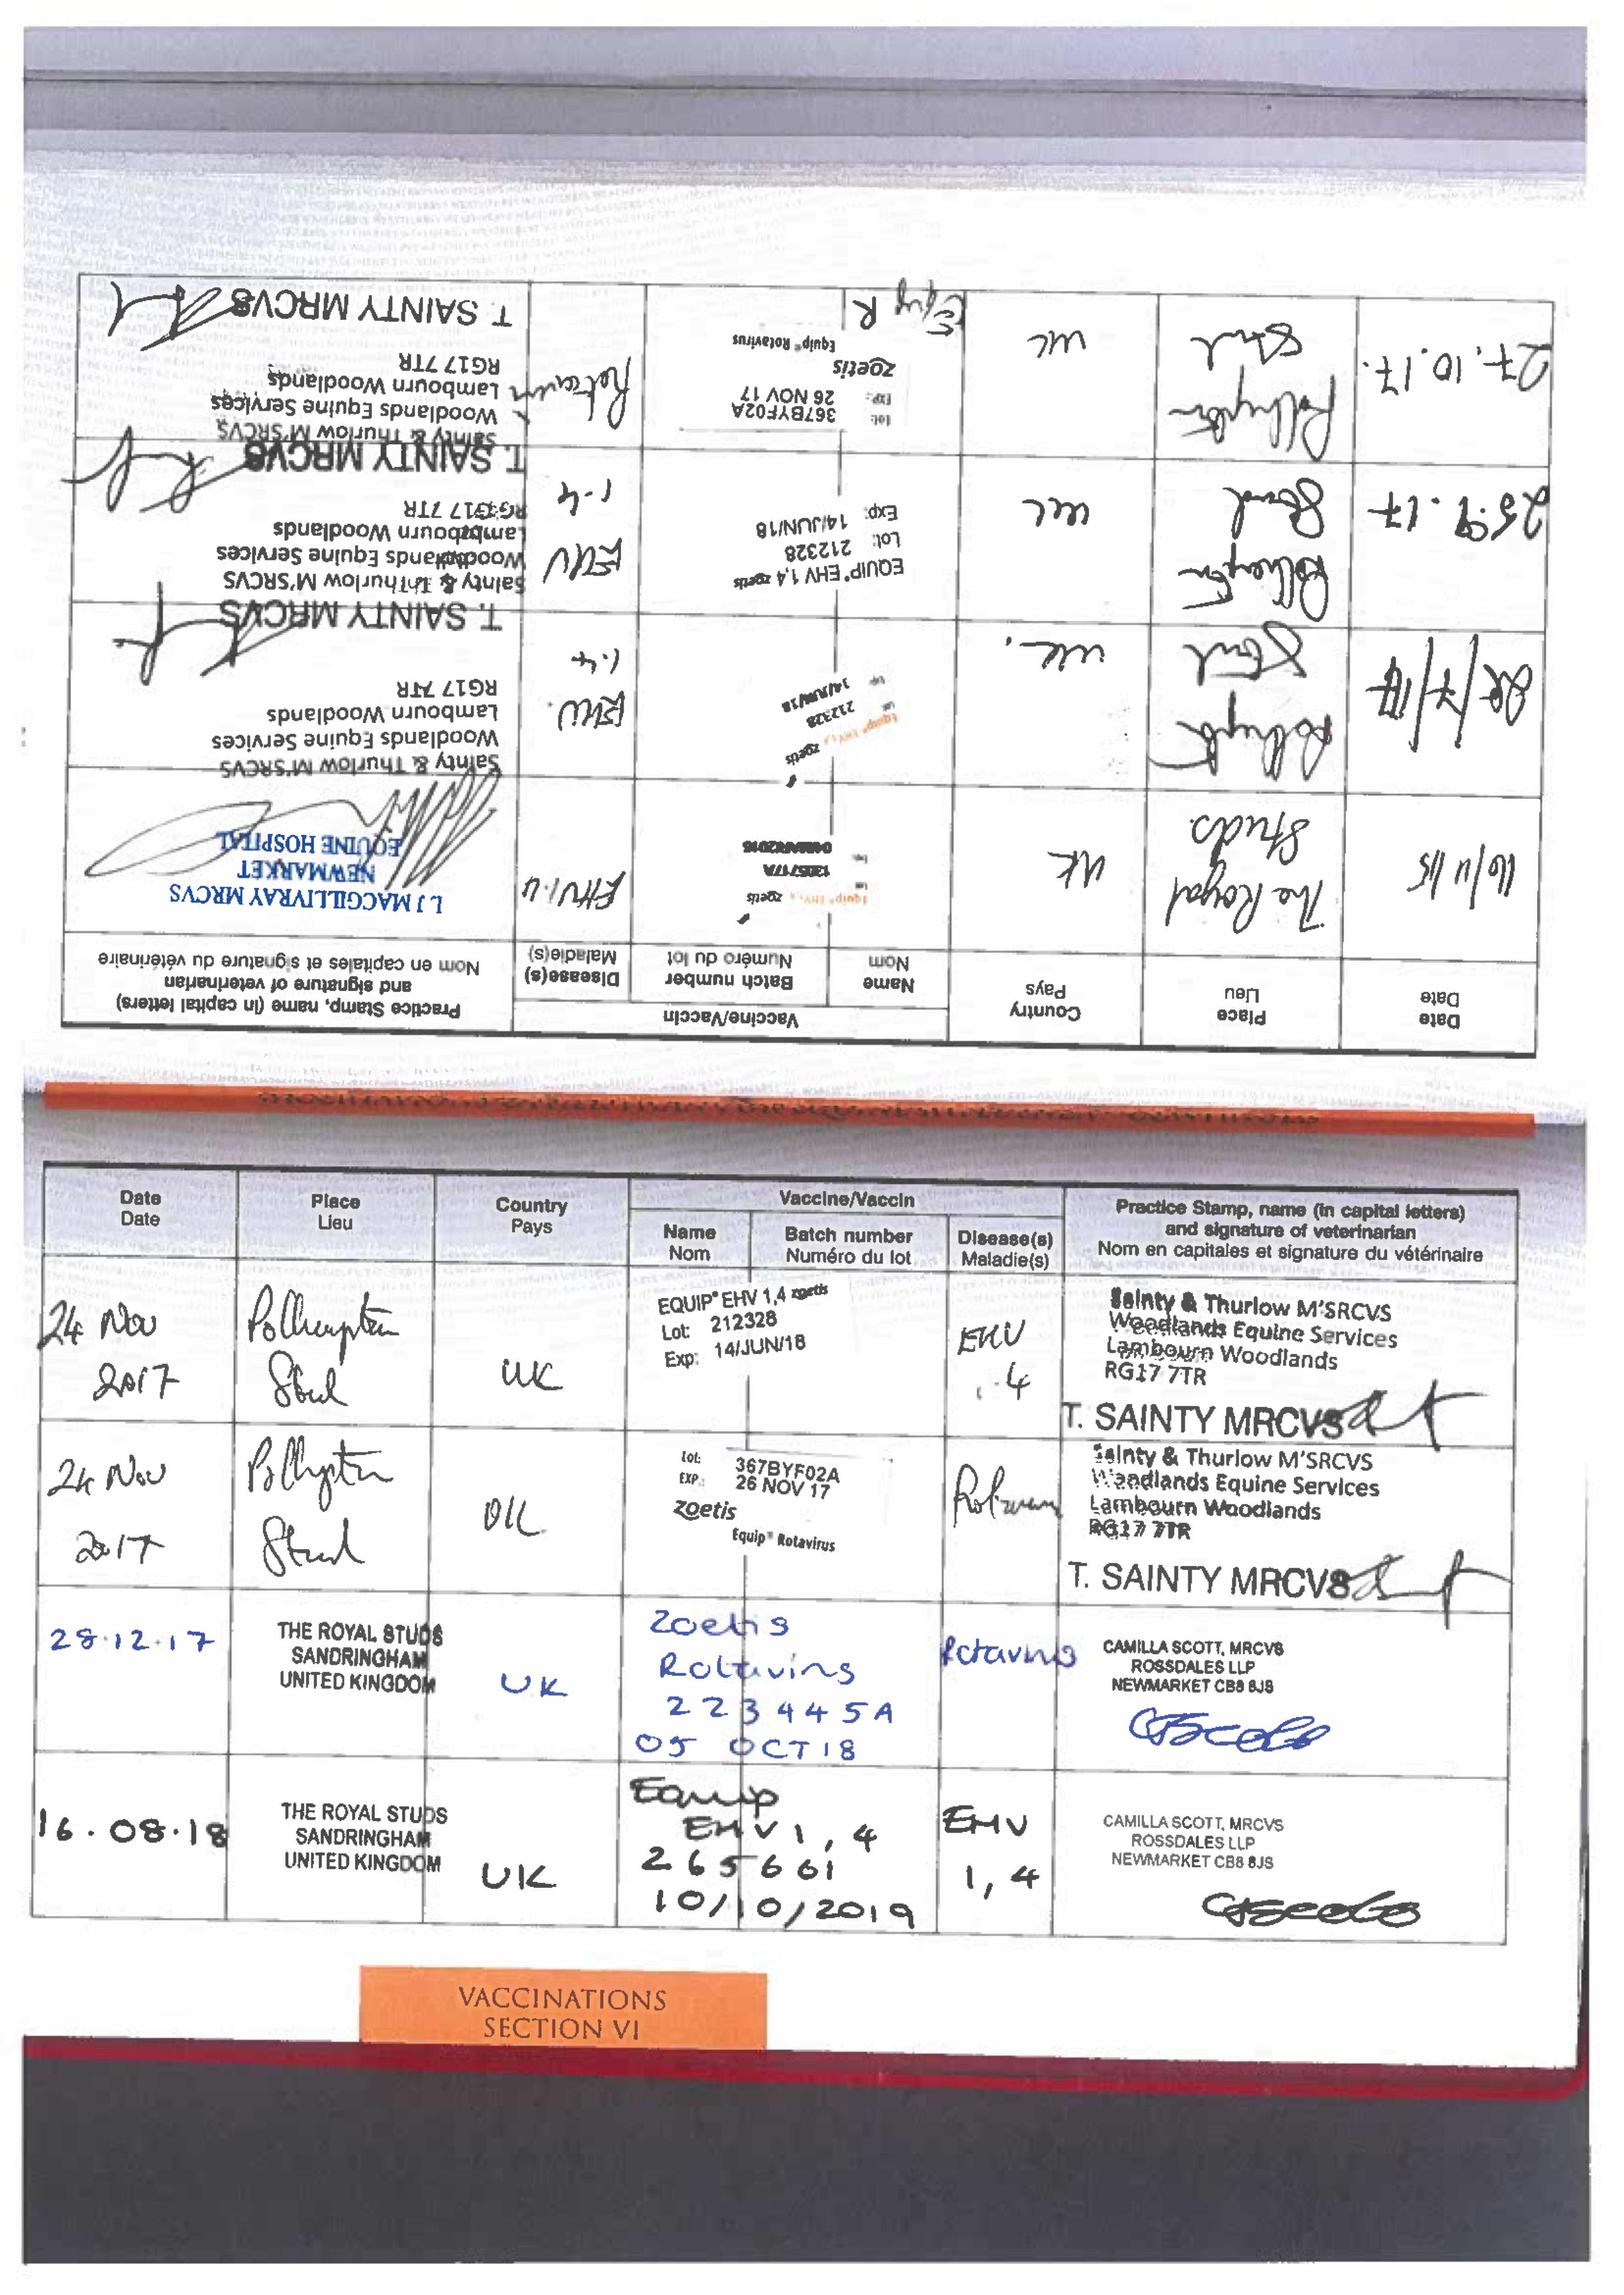 Date
Date
Place
Lieu
Country
Pays
Vaccine/Vaccin
Name
Nom
Batch number
Numéro du lot
Disease(s)
Maladie(s)
Practice Stamp, name (in capital letters)
and signature of veterinarian
Nom en capitales et signature du vétérinaire
16/11/15
The Royal
Studs.
UK
Equip EHV 1,4 zoetis
EHV1,4
L J MACGILLIVRAY MRCVS
NEWMARKET
EQUINE HOSPITAL
Stud
UK.
Equip EHV 1,4 zoetis
212328
14/JUN/18
EHV.
1.4
Sainty & Thurlow M'SRCVS
Woodlands Equine Services
Lambourn Woodlands
RG17 7TR
T. SAINTY MRCVS
25.9.17
Stud
UK
EQUIP® EHV 1,4 zoetis
Lot: 212328
Exp: 14/JUN/18
EHV
1-4
Sainty & Thurlow M'SRCVS
Woodlands Equine Services
Lambourn Woodlands
RG17 7TR
T. SAINTY MRCVS
27.10.17.
Stud
UK
Lot: 367BYF02A
EXP: 26 NOV 17
zoetis
Equip® Rotavirus
Equip R
Sainty & Thurlow M'SRCVS
Woodlands Equine Services
Lambourn Woodlands
RG17 7TR
T. SAINTY MRCVS
Date
Date
Place
Lieu
Country
Pays
Vaccine/Vaccin
Name
Nom
Batch number
Numéro du lot
Disease(s)
Maladie(s)
Practice Stamp, name (in capital letters)
and signature of veterinarian
Nom en capitales et signature du vétérinaire
24 Nov
2017
Polhampton
Stud
UK
EQUIP® EHV 1,4 zoetis
Lot: 212328
Exp: 14/JUN/18
EHV
1.4
Sainty & Thurlow M'SRCVS
Woodlands Equine Services
Lambourn Woodlands
RG17 7TR
T. SAINTY MRCVS
24 Nov
2017
Stud
UK
Lot: 367BYF02A
EXP.: 26 NOV 17
zoetis
Equip® Rotavirus
Sainty & Thurlow M'SRCVS
Woodlands Equine Services
Lambourn Woodlands
RG17 7TR
T. SAINTY MRCVS
28.12.17
THE ROYAL STUDS
SANDRINGHAM
UNITED KINGDOM
UK
Zoetis
Rotavirus
223445A
05 OCT 18
Rotavirus
CAMILLA SCOTT, MRCVS
ROSSDALES LLP
NEWMARKET CB8 8JS
16.08.18
THE ROYAL STUDS
SANDRINGHAM
UNITED KINGDOM
UK
Equip
EHV 1,4
265661
10/10/2019
EHV
1,4
CAMILLA SCOTT, MRCVS
ROSSDALES LLP
NEWMARKET CB8 8JS
VACCINATIONS
SECTION VI